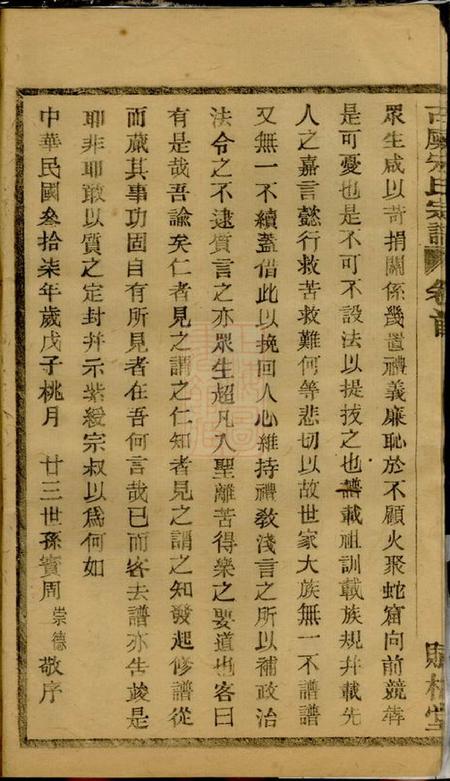 眾生咸以苛捐關係幾置禮義廉恥於不顧火聚蛇窟向前競犇
是可憂也是不可不設法以提拔之也譜載祖訓載族規幷載先
人之嘉言懿行救苦救難何等悲切以故世家大族無一不譜譜
又無一不續蓋借此以挽回人心維持禮敎淺言之所以補政治
法令之不逮質言之亦眾生超凡入聖離苦得樂之要道也客曰
有是哉吾諭矣仁者見之謂之仁知者見之謂之知發起修譜從
而蕆其事功固自有所見者在吾何言哉已而客去譜亦告竣是
耶非耶敢以質之定封幷示紫綬宗叔以爲何如
中華民國叁拾柒年歲戊子桃月 廿三世孫賓周崇德敬序
氏宗譜 卷首
堂